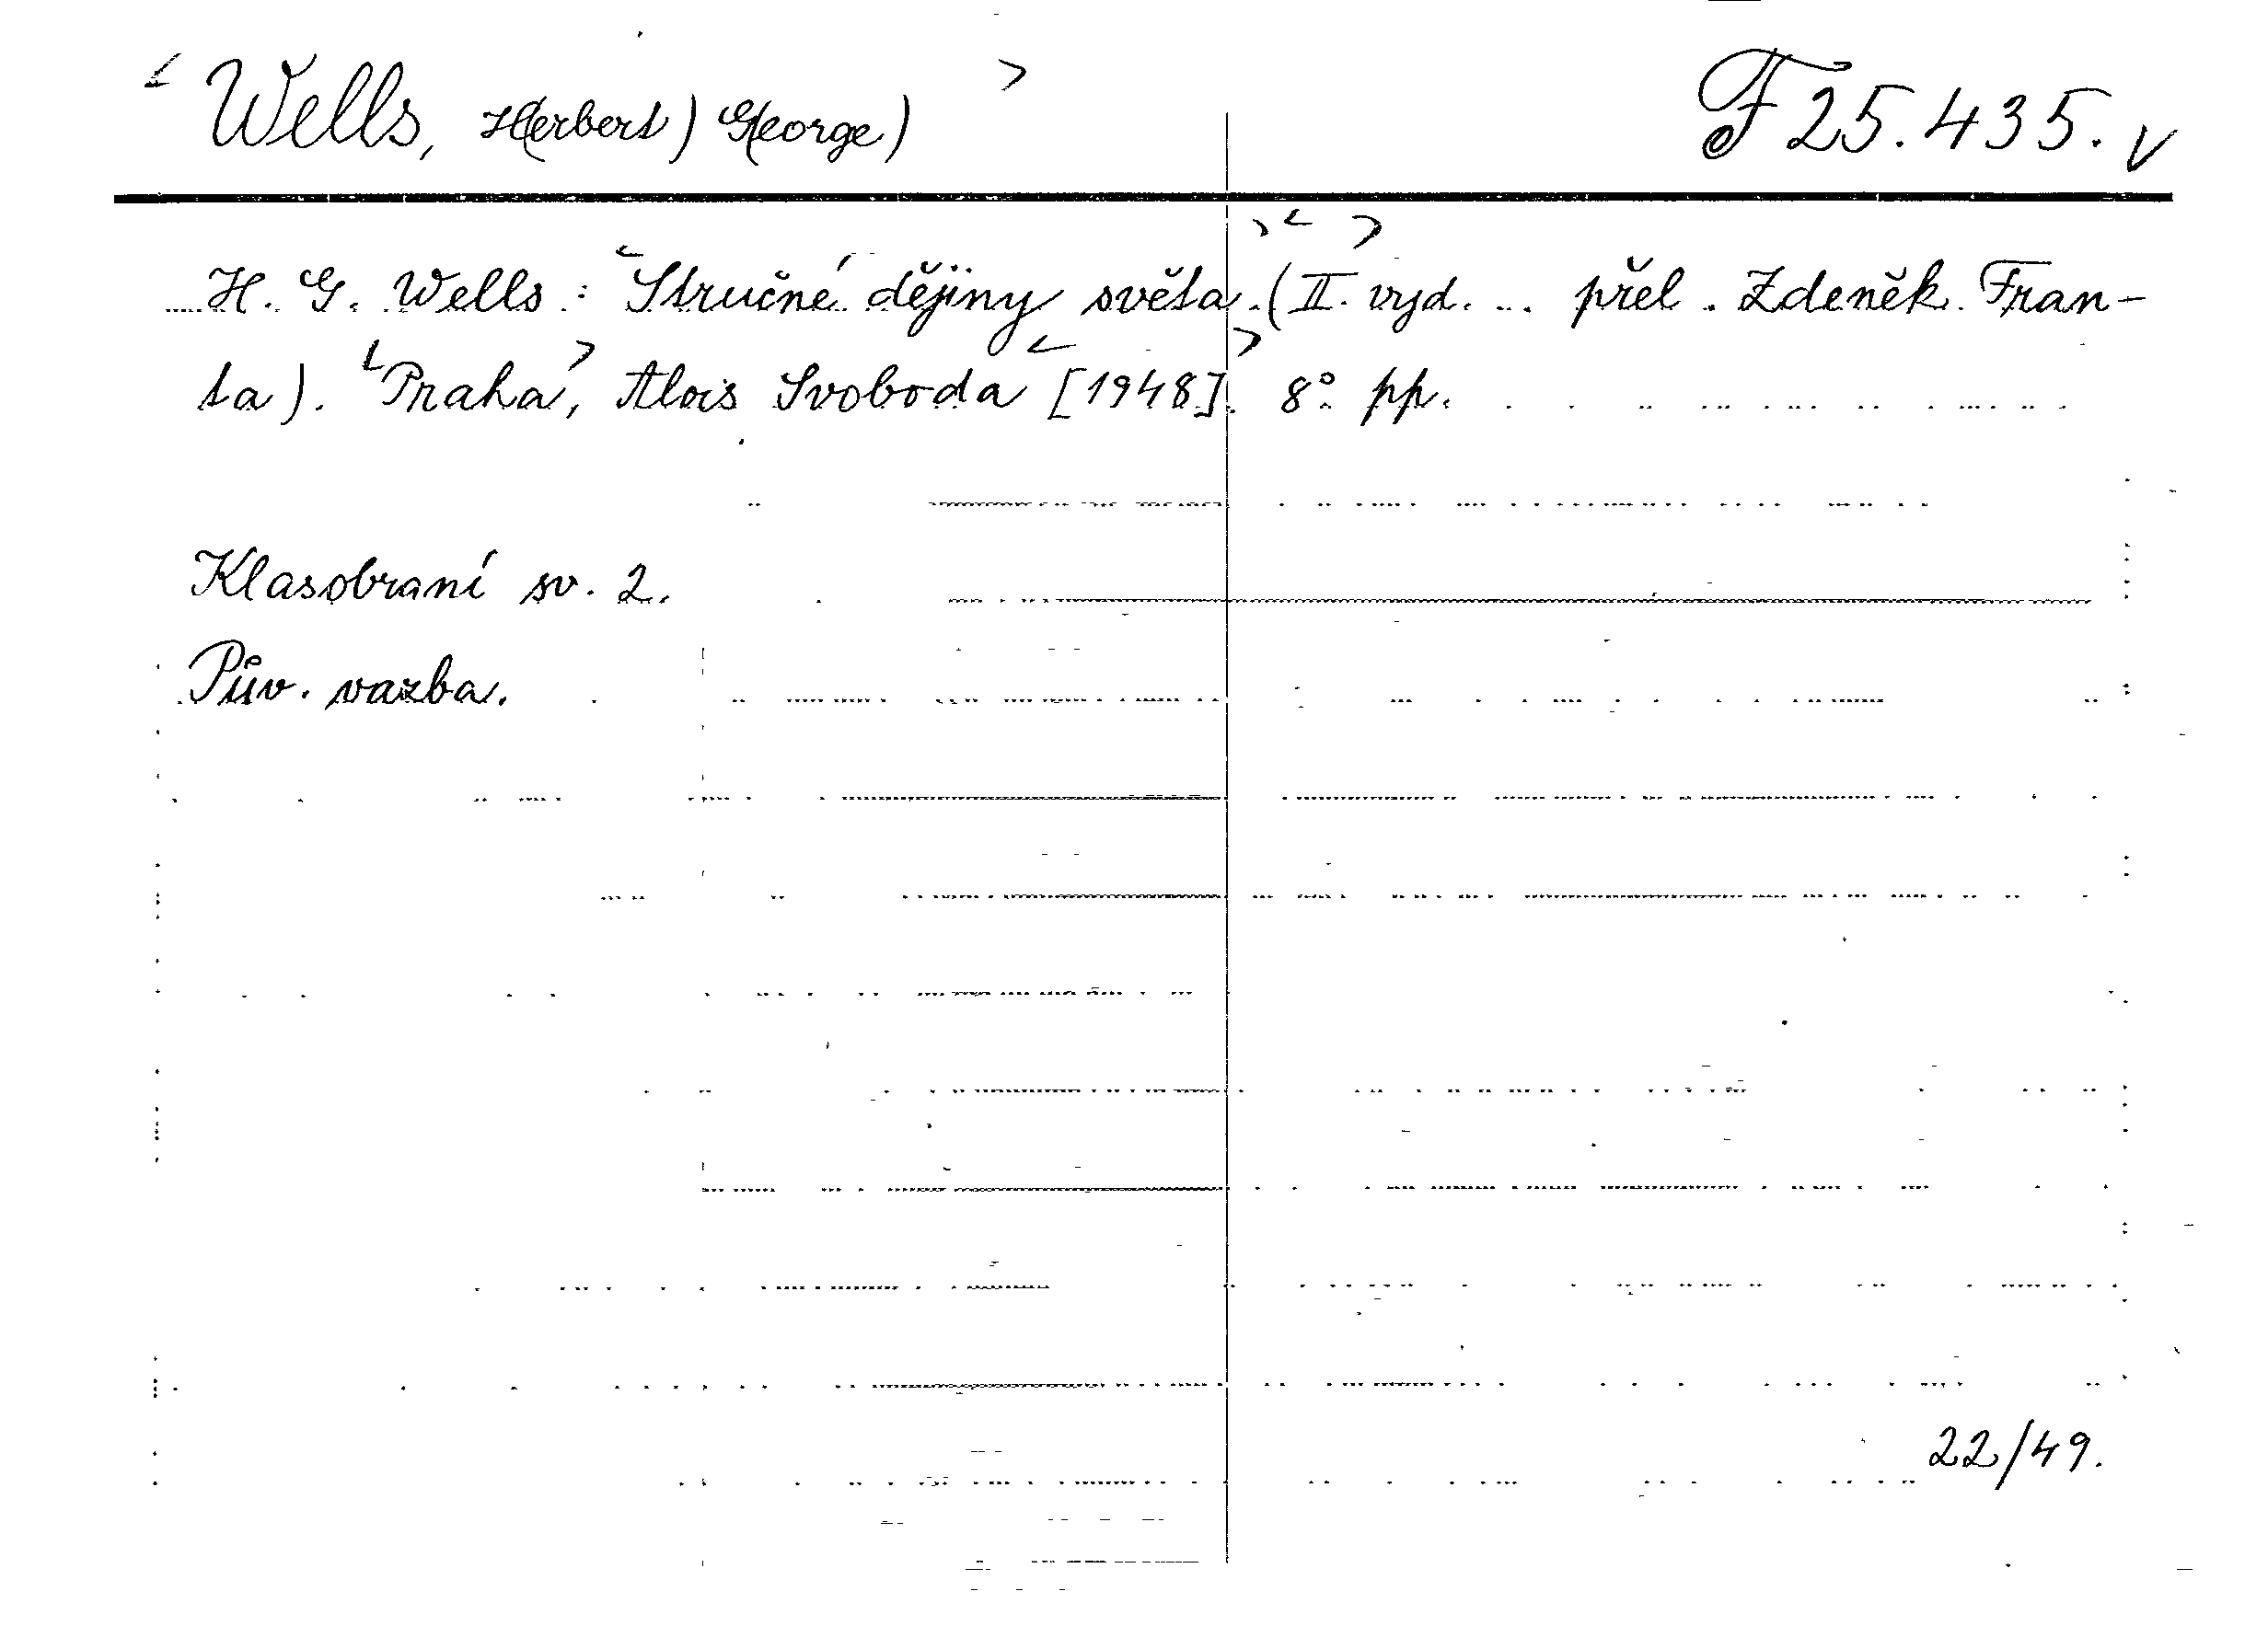 Wells, H(erbert) G(eorge) F 25.435.
H. G. Wells: Stručné dějiny světa. (II. vyd. ... přel. Zdeněk Fran-
ta). Praha, Alois Svoboda [1948]. 8° pp.
Klasobraní sv. 2.
Pův. vazba.
22/49.